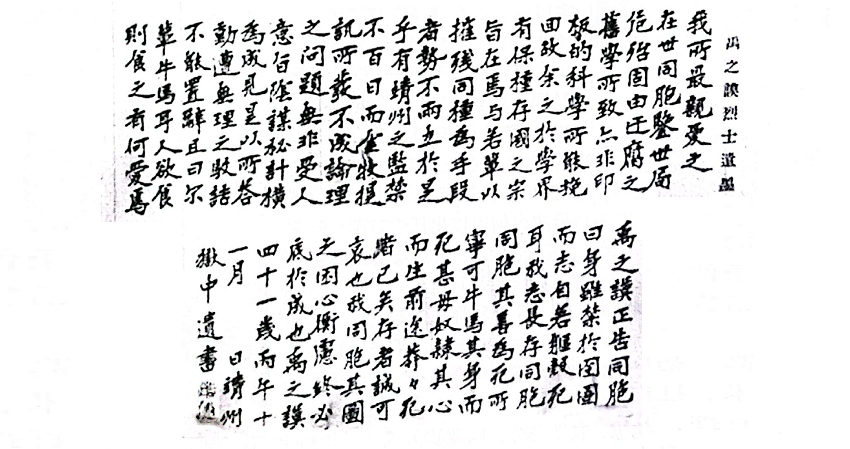 禹之謨烈士遺墨
我所最親愛之
在世同胞鑒世局
危殆固由迂腐之
舊學所致亦非印
板的科學所能挽
回故余之於學界
有保種存國之宗
旨在焉与若輩以
摧殘同種為手段
者勢不兩立於是
乎有靖州之監禁
不百日而金牧提
訊所發不成論理
之问題無非受人
意旨陰謀秘計橫
為成見是以所答
動遭無理之詰
不能置辭且曰尔
輩牛馬耳人欲食
則食之有何愛焉
禹之謨正告同胞
曰身雖禁於囹圄
而志自若軀殼死
耳我志長存同胞
同胞其善為死所
寧可牛馬其身而
死甚毋奴隸其心
而生前途莽々死
者已矣存者誠可
哀也我同胞其圖
之困心衡慮終必
底於成也禹之謨
四十一歲丙午十
一月 日靖州
獄中遺書